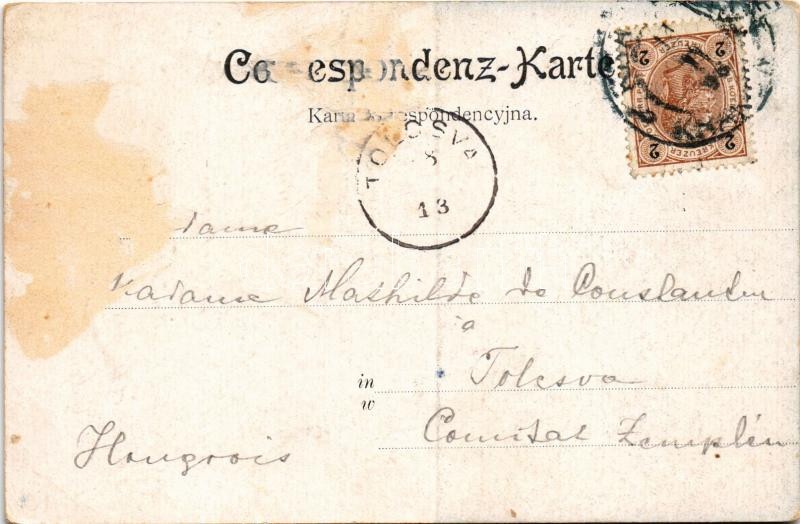 Correspondenz-Karte
Karta korespondencyjna.
2 KREUZER 2
2 KREUZER 2
TOLCSVA
8
13
Madame
Madame Mathilde de Constantin
à
in Tolcsva
w
Comitat Zemplén
Hongrois